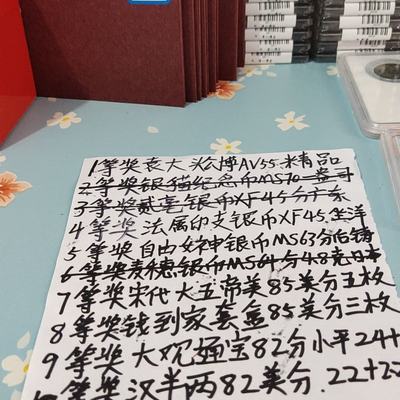 1等奖袁大头公博AV55.精品
2等奖银猫纪念币MS70一盎司
3等奖贰毫银币XF45分广东
4等奖法属印支银币XF45.坐洋
5等奖自由女神银币MS63分后铸
6等奖麦穗银币MS64分4.8克日本
7等奖宋代大五帝美85美分五枚
8等奖钱到家套盒85美分三枚
9等奖大观通宝82分小平24+
等奖汉半两82美分.22+22